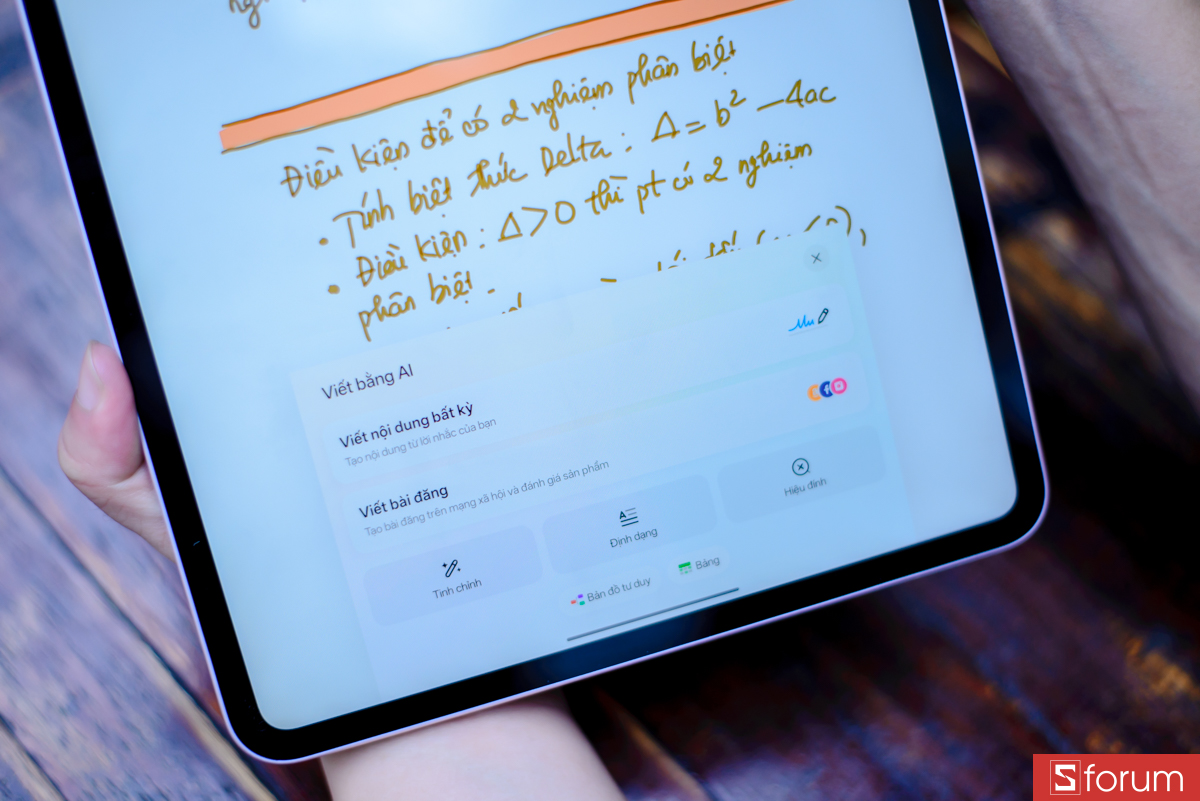 Điều kiện để có 2 nghiệm phân biệt
• Tính biệt thức Delta : Δ = b² – 4ac
• Điều kiện : Δ > 0 thì pt có 2 nghiệm
phân biệt
Viết bằng AI
Viết nội dung bất kỳ
Tạo nội dung từ lời nhắc của bạn
Viết bài đăng
Tạo bài đăng trên mạng xã hội và đánh giá sản phẩm
Tinh chỉnh
Định dạng
Hiệu đính
Bản đồ tư duy
Bảng
Sforum